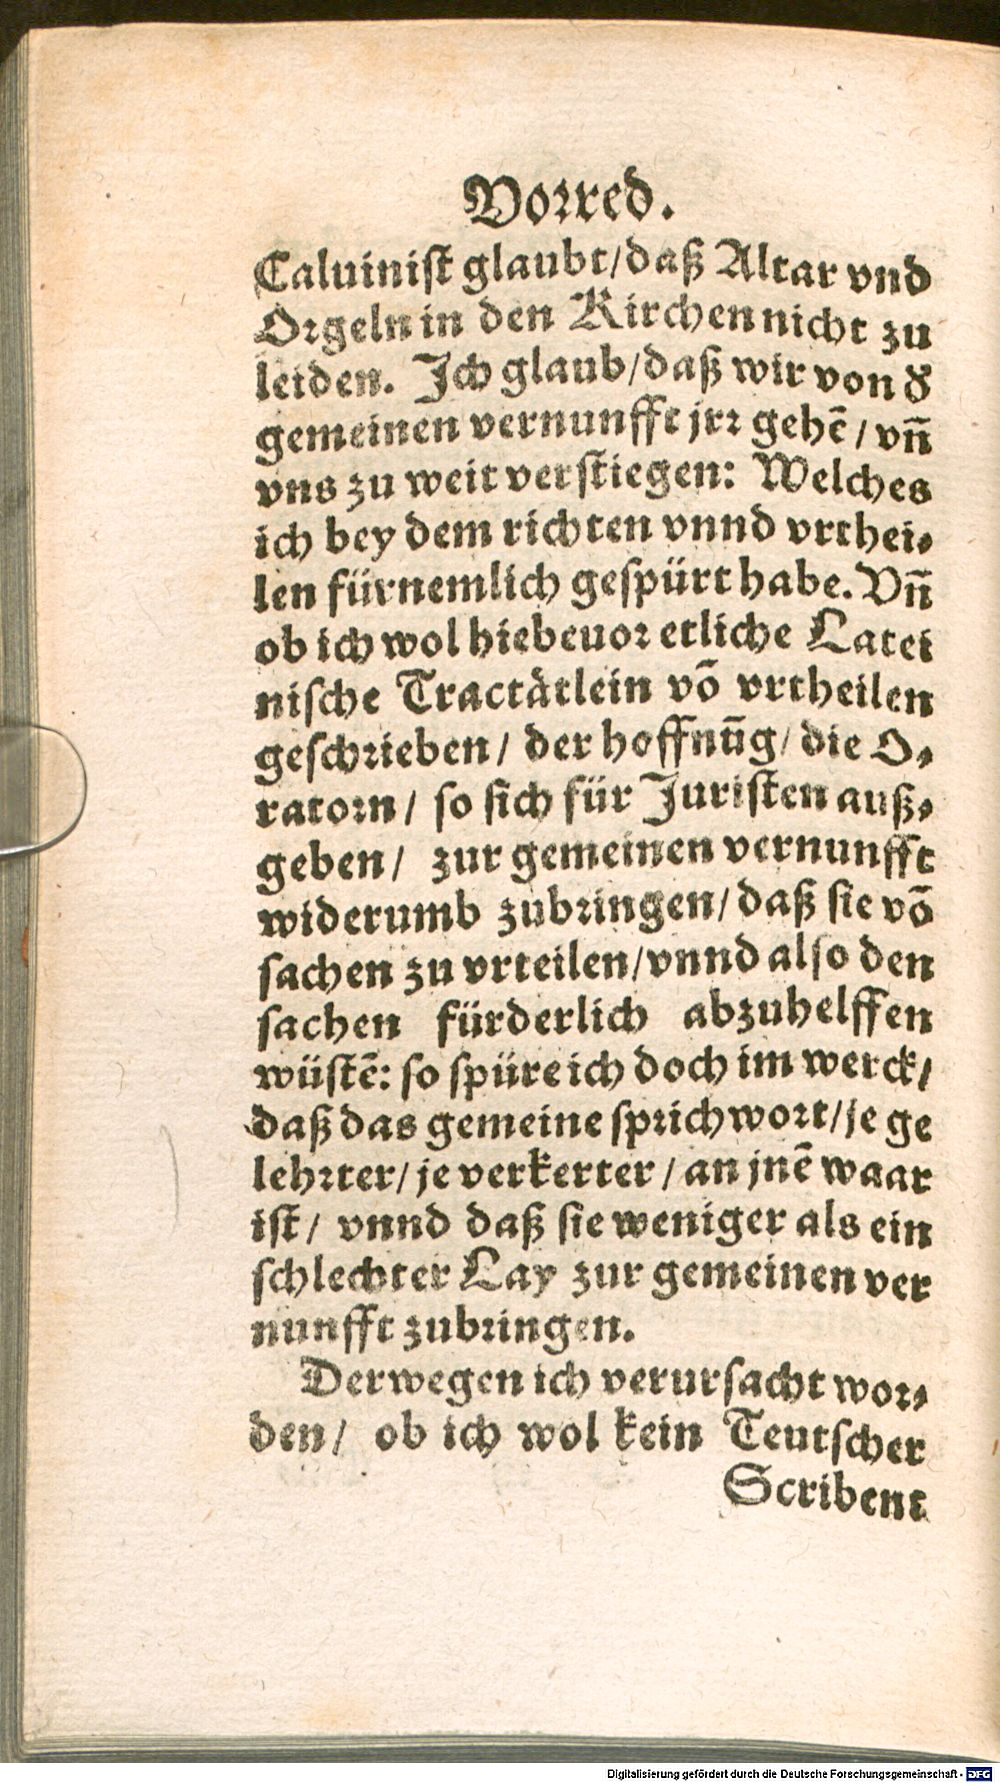 Vorred.
Caluinist glaubt/daß Altar vnd
Orgeln in den Kirchen nicht zu
leiden. Ich glaub/daß wir von d̕
gemeinen vernunfft jrr gehē/ vñ
vns zu weit verstiegen: Welches
ich bey dem richten vnnd vrthei⸗
len fürnemlich gespürt habe. Vñ
ob ich wol hiebeuor etliche Latei
nische Tractätlein võ vrtheilen
geschrieben/ der hoffnũg/ die O⸗
ratorn/ so sich für Juristen auß⸗
geben/ zur gemeinen vernunfft
widerumb zubringen/daß sie võ
sachen zu vrteilen/vnnd also den
sachen fürderlich abzuhelffen
wüstē: so spüre ich doch im werck/
daß das gemeine sprichwort/je ge
lehrter/je verkerter/an jnē waar
ist/ vnnd daß sie weniger als ein
schlechter Lay zur gemeinen ver
nunfft zubringen.
Derwegen ich verursacht wor⸗
den/ ob ich wol kein Teutscher
Scribent
Digitalisierung gefördert durch die Deutsche Forschungsgemeinschaft - DFG